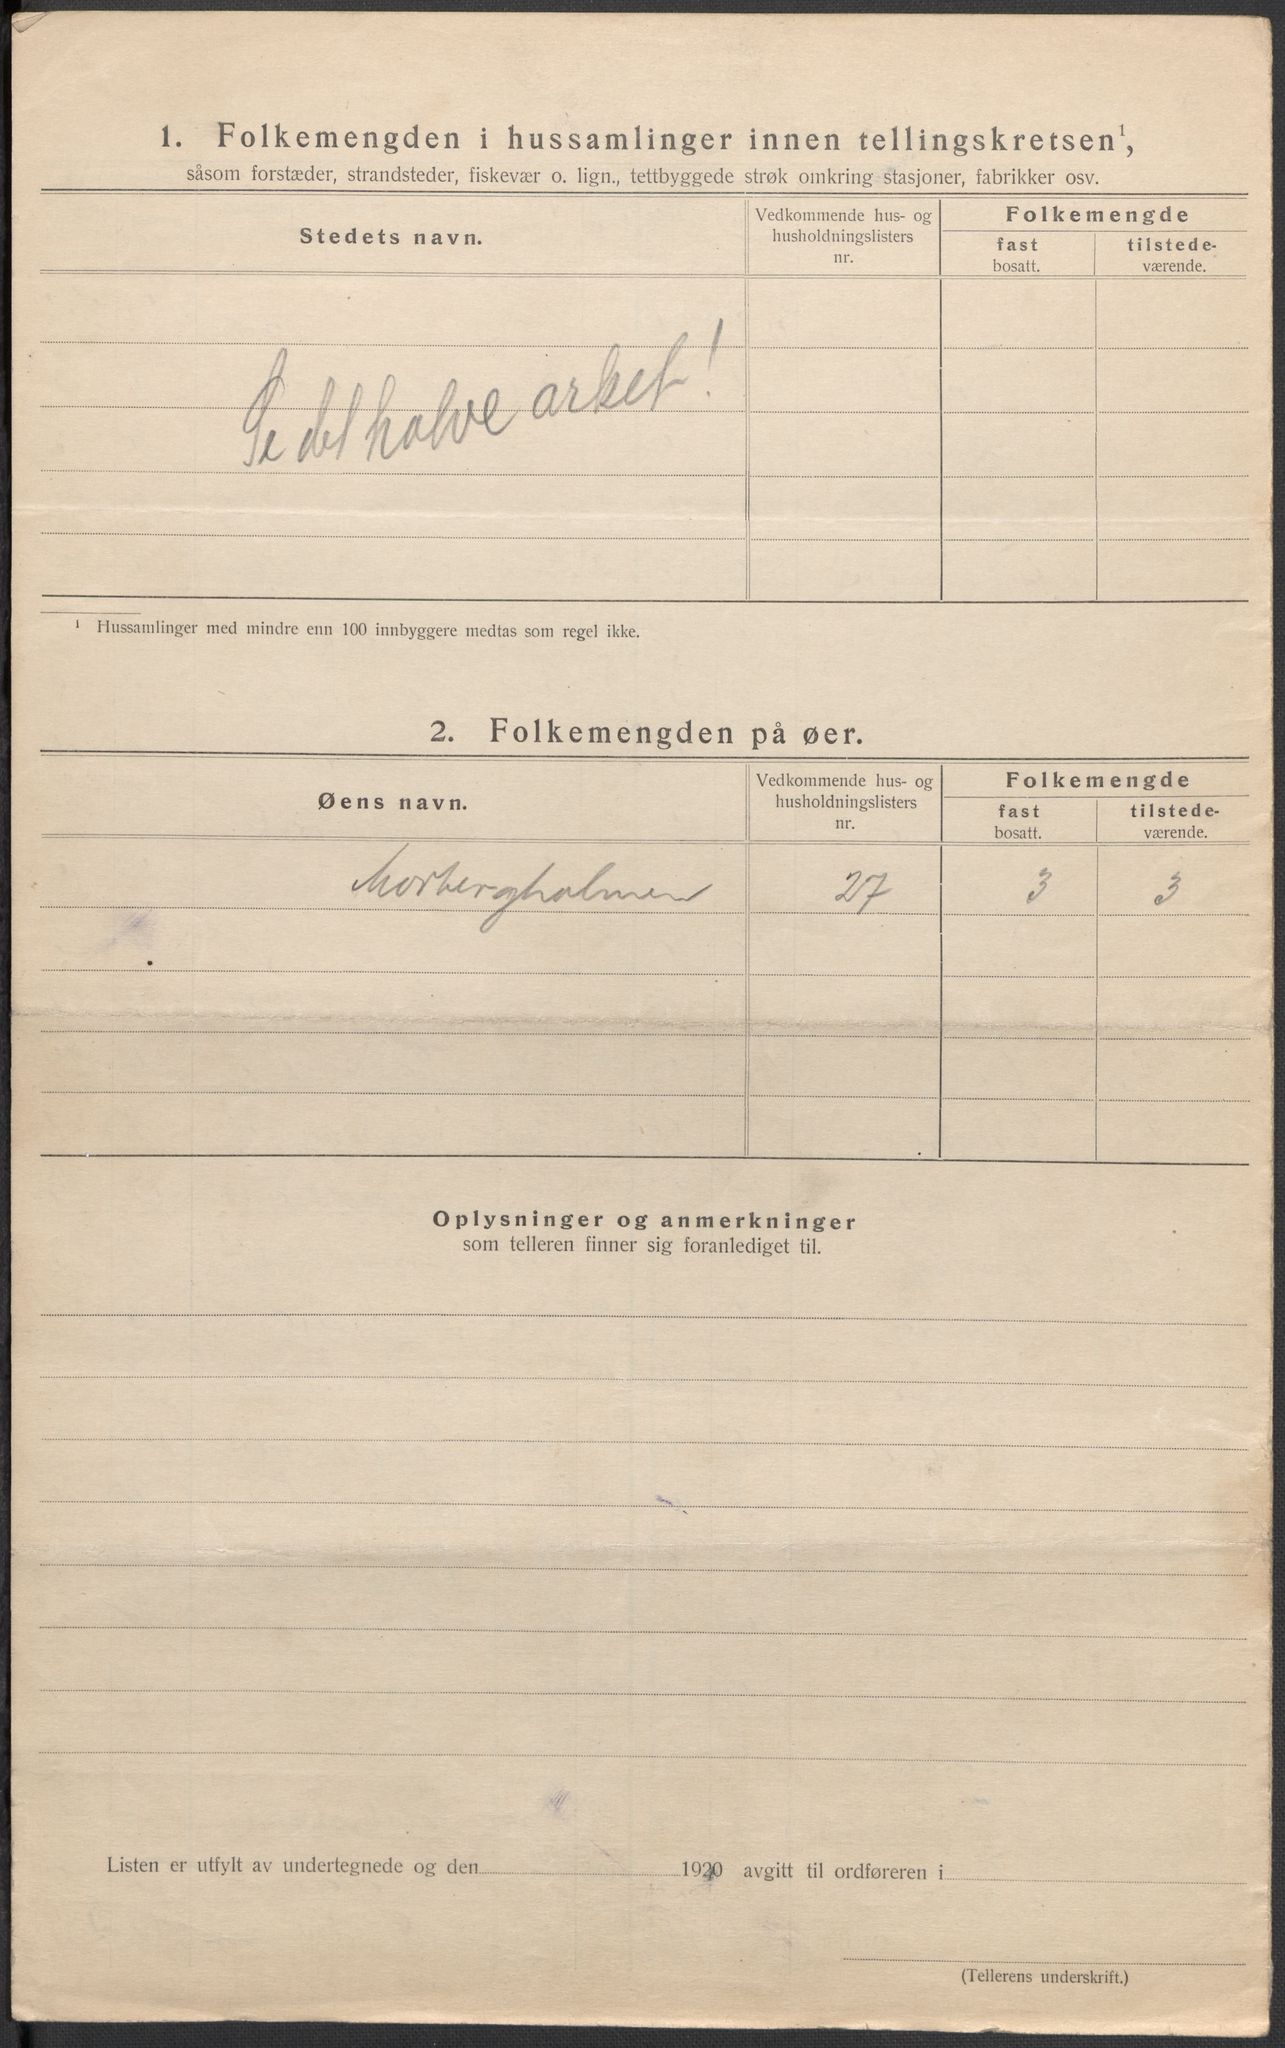 1. Folkemengden i hussamlinger innen tellingskretsen¹,
såsom forstæder, strandsteder, fiskevær o. lign., tettbyggede strøk omkring stasjoner, fabrikker osv.
Stedets navn.
Vedkommende hus- og
husholdningslisters
nr.
Folkemengde
fast
bosatt.
tilstede-
værende.
Se det halve arket!
¹ Hussamlinger med mindre enn 100 innbyggere medtas som regel ikke.
2. Folkemengden på øer.
Øens navn.
Vedkommende hus- og
husholdningslisters
nr.
Folkemengde
fast
bosatt.
tilstede-
værende.
Morbergholmen 27 3 3
Oplysninger og anmerkninger
som telleren finner sig foranlediget til.
Listen er utfylt av undertegnede og den 1920 avgitt til ordføreren i
(Tellerens underskrift.)